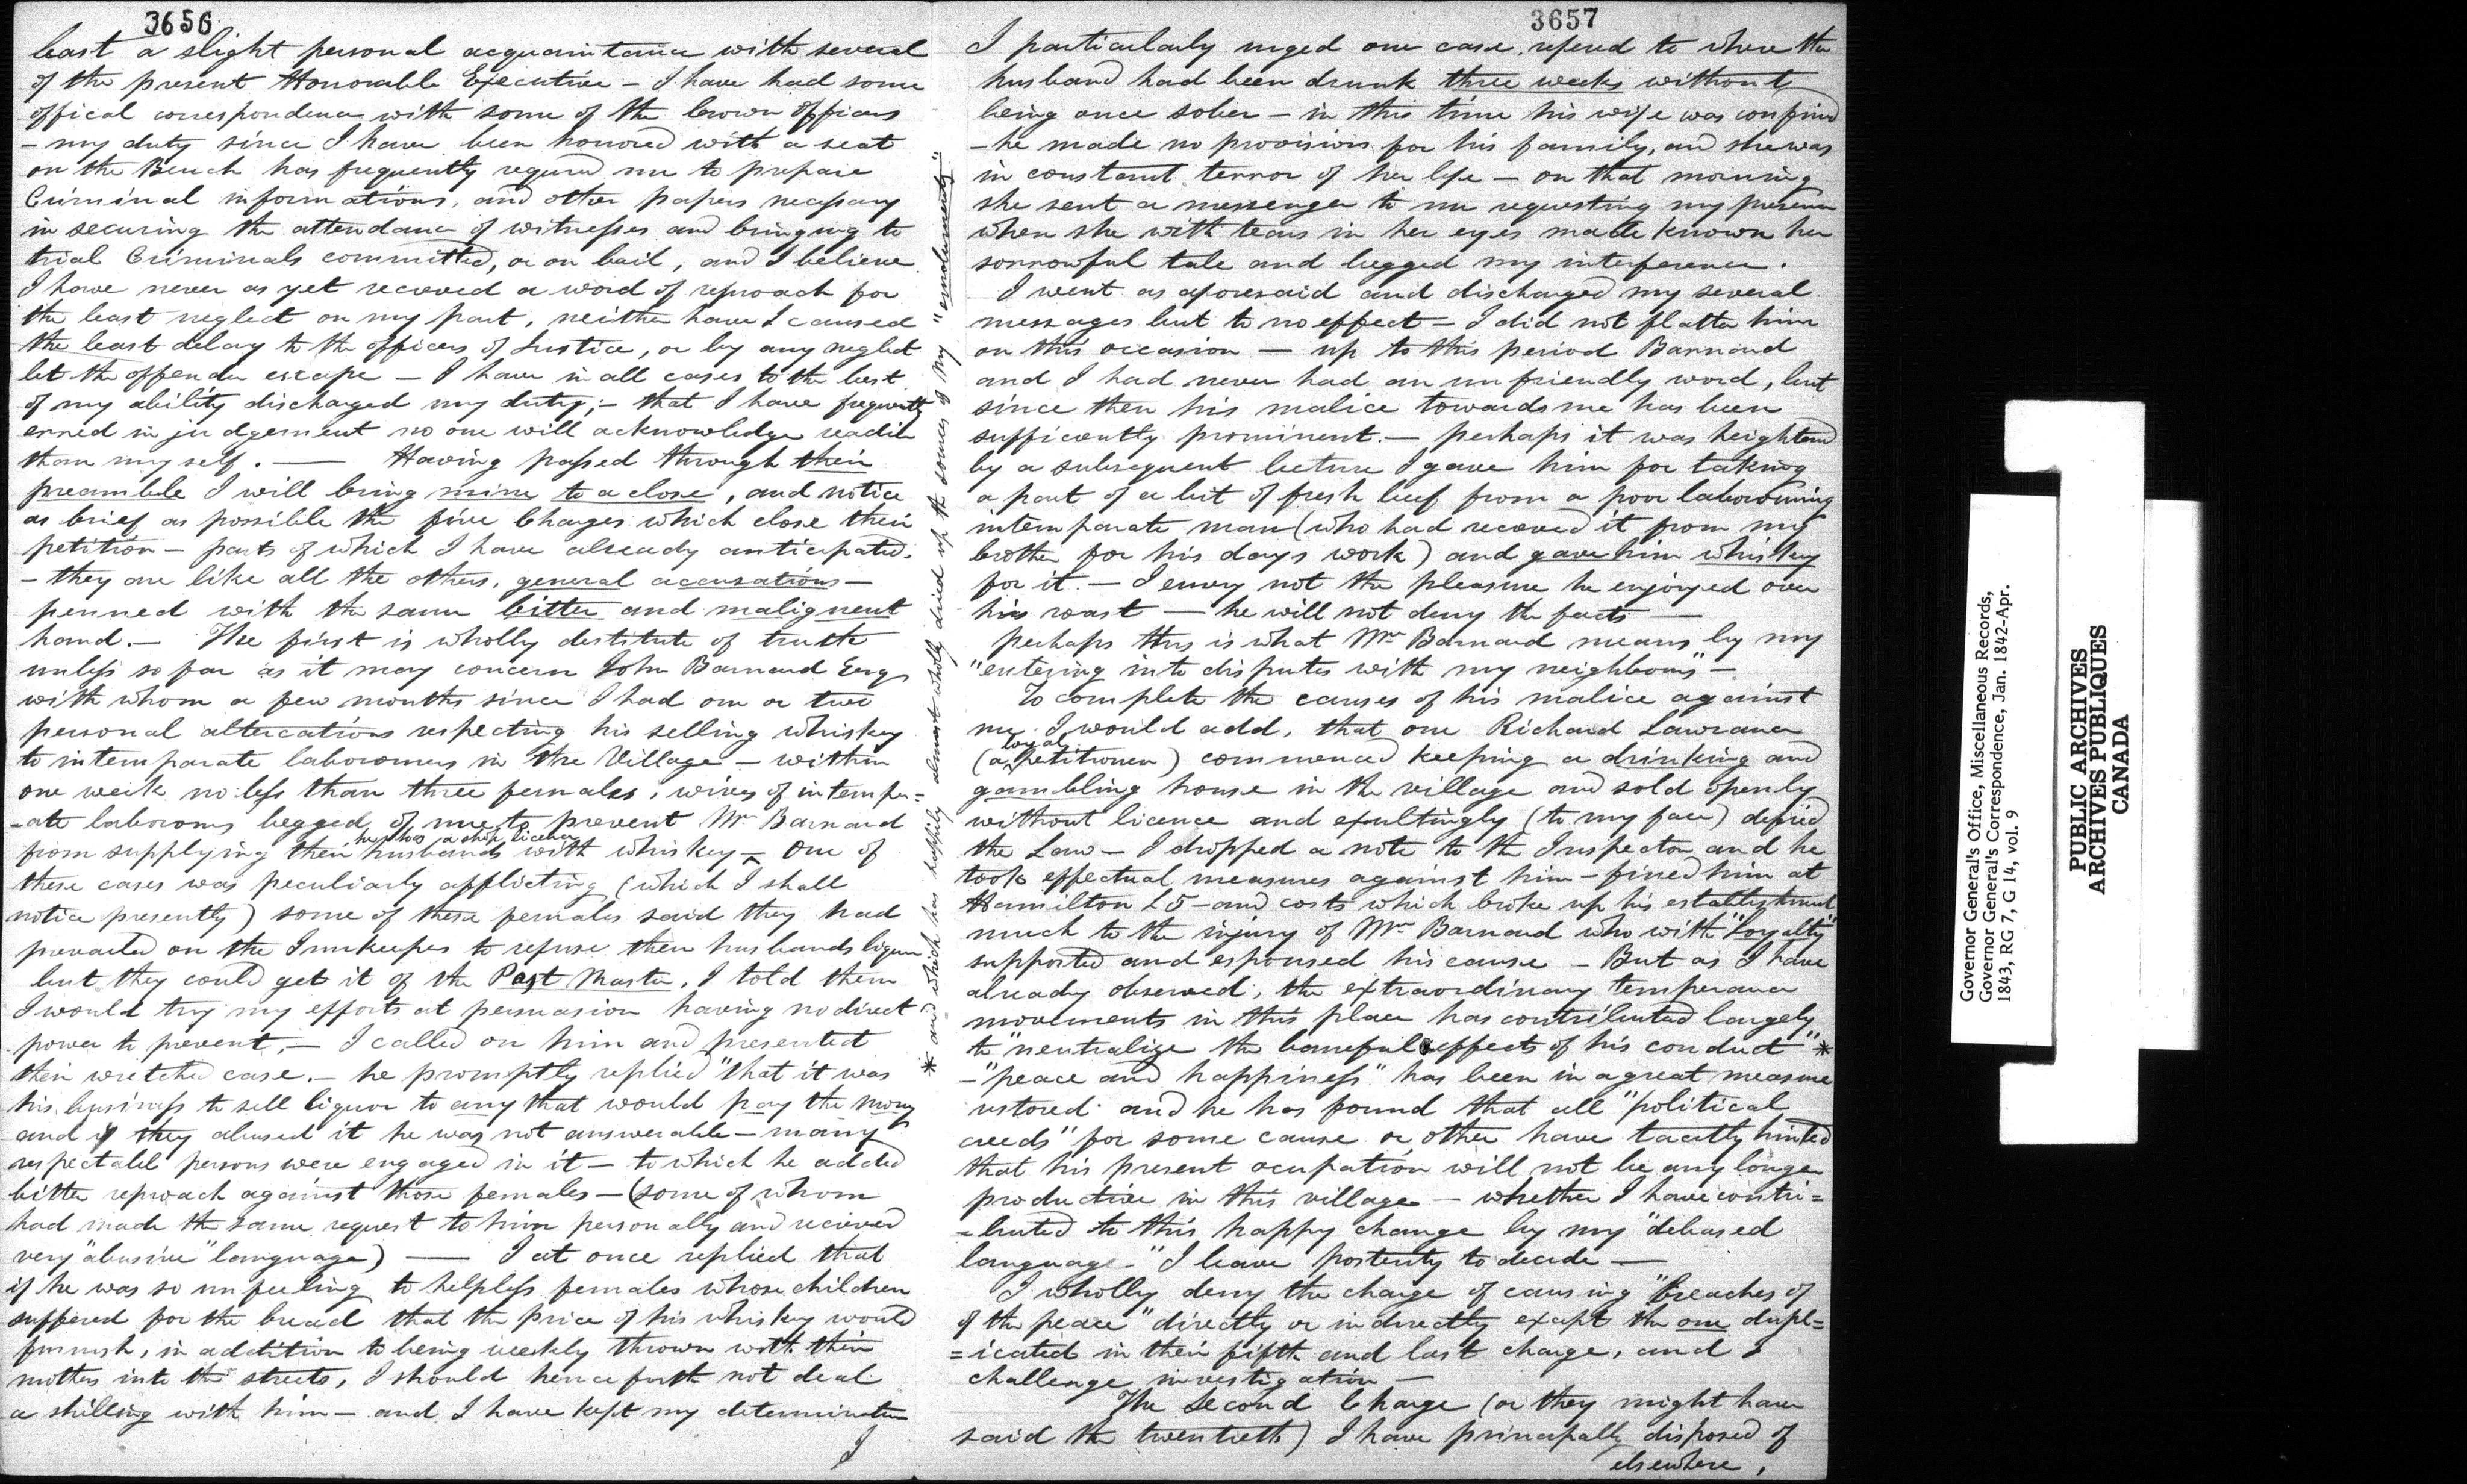 3656
least a slight personal acquaintance with several
of the present Honorable Executive – I have had some
offical correspondence with some of the Crown officers
– my duty since I have been honored with a seat
on the Bench has frequently requred me to prepare
Criminal informations, and other papers necessary
in securing the attendance of witnesses and bringing to
trial Criminals committed, or on bail, and I believe
I have never as yet recieved a word of reproach for
the least neglect on my part, neither have I caused
the least delay to the officers of Justice, or by any neglect
let the offender escape – I have in all cases to the best
of my ability discharged my duty; – that I have frequently
erred in judgement no one will acknowledge readier
than myself. — Having passed through their
preamble I will bring mine to a close, and notice
as brief as possible the five Charges which close their
petition – parts of which I have already anticipated.
– they are like all the others, general accusations –
penned with the same bitter and malignent
hand. – The first is wholly destitute of truth
unless so far as it may concern John Barnard Esq
with whom a few months since I had one or two
personal altercations respecting his selling whiskey
to intemparate labourers in the Village – within
one week no less than three females, wives of intemper=
-ate labourers begged of me to prevent Mr Barnard
from supplying their husbands with whiskey – One of
he has a shop licence
these cases was peculiarly afflicting (which I shall
notice presently) some of these females said they had
prevailed on the Innkeepers to refuse their husbands liquor
but they could get it of the Post Master, I told them
I would try my efforts at persuasion having no direct
power to prevent. – I called on him and presented
their wretched case. – he promptly replied "that it was
his business to sell liquor to any that would pay the money
and if they abused it he was not answerable – many
respectabl persons were engaged in it – to which he added
bitter reproach against those females – (some of whom
had made the same request to him personally and recieved
very "abusive" language) — I at once replied that
if he was so unfeeling to helpless females whose children
suffered for the bread that the price of his whiskey would
furnish, in addition to being weekly thrown with their
mothers into the streets, I should henceforth not deal
a shilling with him – and I have kept my determination
I
* and which has happily almost wholly dried up the sources of my "emoluments"
3657
I particularly urged one case refered to where the
husband had been drunk three weeks without
being once sober – in this time his wife was confined
– he made no provisions for his family, and she was
in constant terror of her life – on that morning
she sent a messenger to me requesting my presence
when she with tears in her eyes made known her
sorrowful tale and begged my interference.
I went as aforesaid and discharged my several
messages but to no effect – I did not flatter him
on this occasion — up to this period Barnard
and I had never had an unfriendly word, but
since then his malice towards me has been
sufficently prominent. – perhaps it was heightend
by a subsequent lecture I gave him for taking
a part of a bit of fresh beef from a poor labouring
intemparate man (who had recieved it from my
brother for his days work) and gave him whiskey
for it. – I envy not the pleasure he enjoyed over
his roast — he will not deny the facts —
perhaps this is what Mr Barnard means by my
"entering into disputes with my neighbours" –
To complete the causes of his malice against
me I would add, that one Richard Lawrance
loyal
(a petitioner) commenced keeping a drinking and
gambling house in the village and sold openly
without licence and exultingly (to my face) defied
the Law – I dropped a note to the Inspector and he
took effectual measures against him – fined him at
Hamilton £5 – and costs which broke up his establishment
much to the injury of Mr Barnard who with "Loyalty"
supported and espoused his cause – But as I have
already observed, the extraordinary temperance
movements in this place has contributed largely
to "neutralize the baneful effects of his conduct" *
– "peace and happiness" has been in a great measure
restored and he has found that all "political
creeds" for some cause or other have tacitly hinted
that his present ocupation will not be any longer
productive in this village – whether I have contri=
-buted to this happy change by my "debased
language" I leave posterity to decide —
I wholly deny the charge of causing "breaches of
of the peace" directly or indirectly except the one dupl=
=icated in their fifth and last charge, and I
challenge investigation —
The Second Charge (or they might have
said the twentieth) I have principally disposed of
elsewhere,
Governor General's Office, Miscellaneous Records,
Governor General's Correspondence, Jan. 1842-Apr.
1843, RG 7, G 14, vol. 9
PUBLIC ARCHIVES
ARCHIVES PUBLIQUES
CANADA